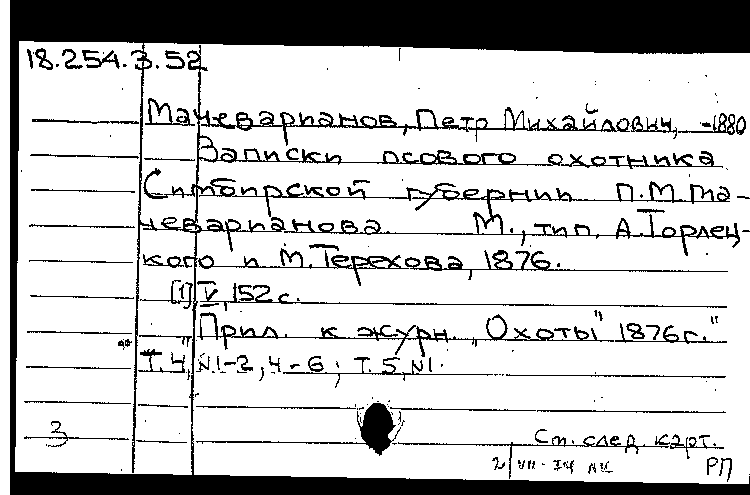 18.254.3.52
Мачеварианов, Петр Михайлович, -1880
Записки псового охотника
Симбирской губернии П.М. Ма-
чеварианова. М., тип. А. Торлец-
кого и М. Терехова, 1876.
[1] V, 152 с.
Прил. к журн. „Охоты" 1876 г."
Т. 4, N1-2, 4-6; Т. 5, N1.
3
См. след. карт.
РП